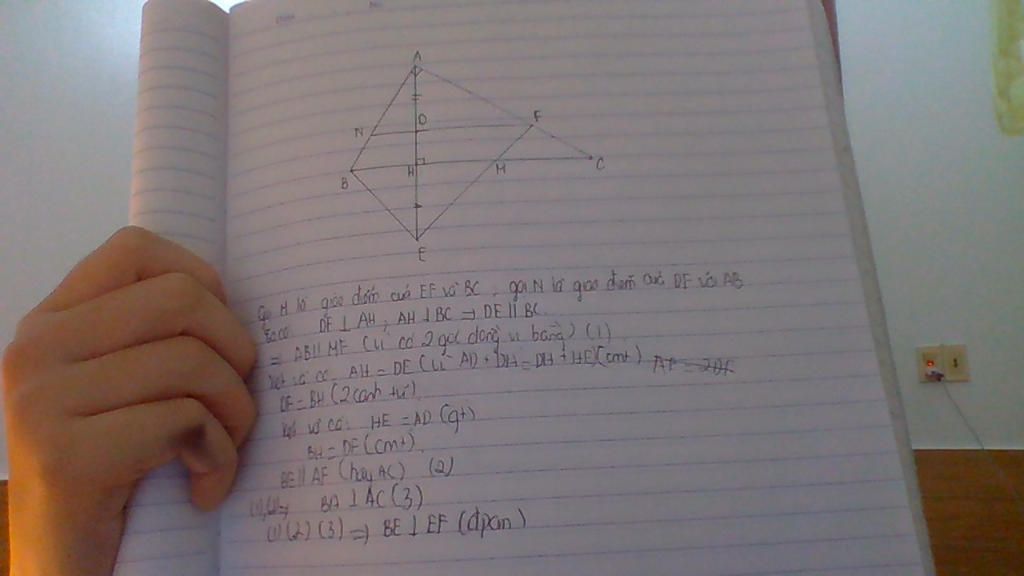 A
D
F
N
H
M
C
B
E
Gọi M là giao điểm của EF và BC, gọi N là giao điểm của DF với AB
Ta có DF ⊥ AH, AH ⊥ BC ⇒ DF // BC
= AB // MF (vì có 2 góc đồng vị bằng) (1)
ta có AH = DE (vì AD + DH = DH + HE) (cmt)
DF = BH (2 cạnh tứ)
ta có: HE = AD (gt)
BH = DF (cmt)
BE // AF (hay AC) (2)
⇒ BA ⊥ AC (3)
(1) (2) (3) ⇒ BE ⊥ EF (đpcm)